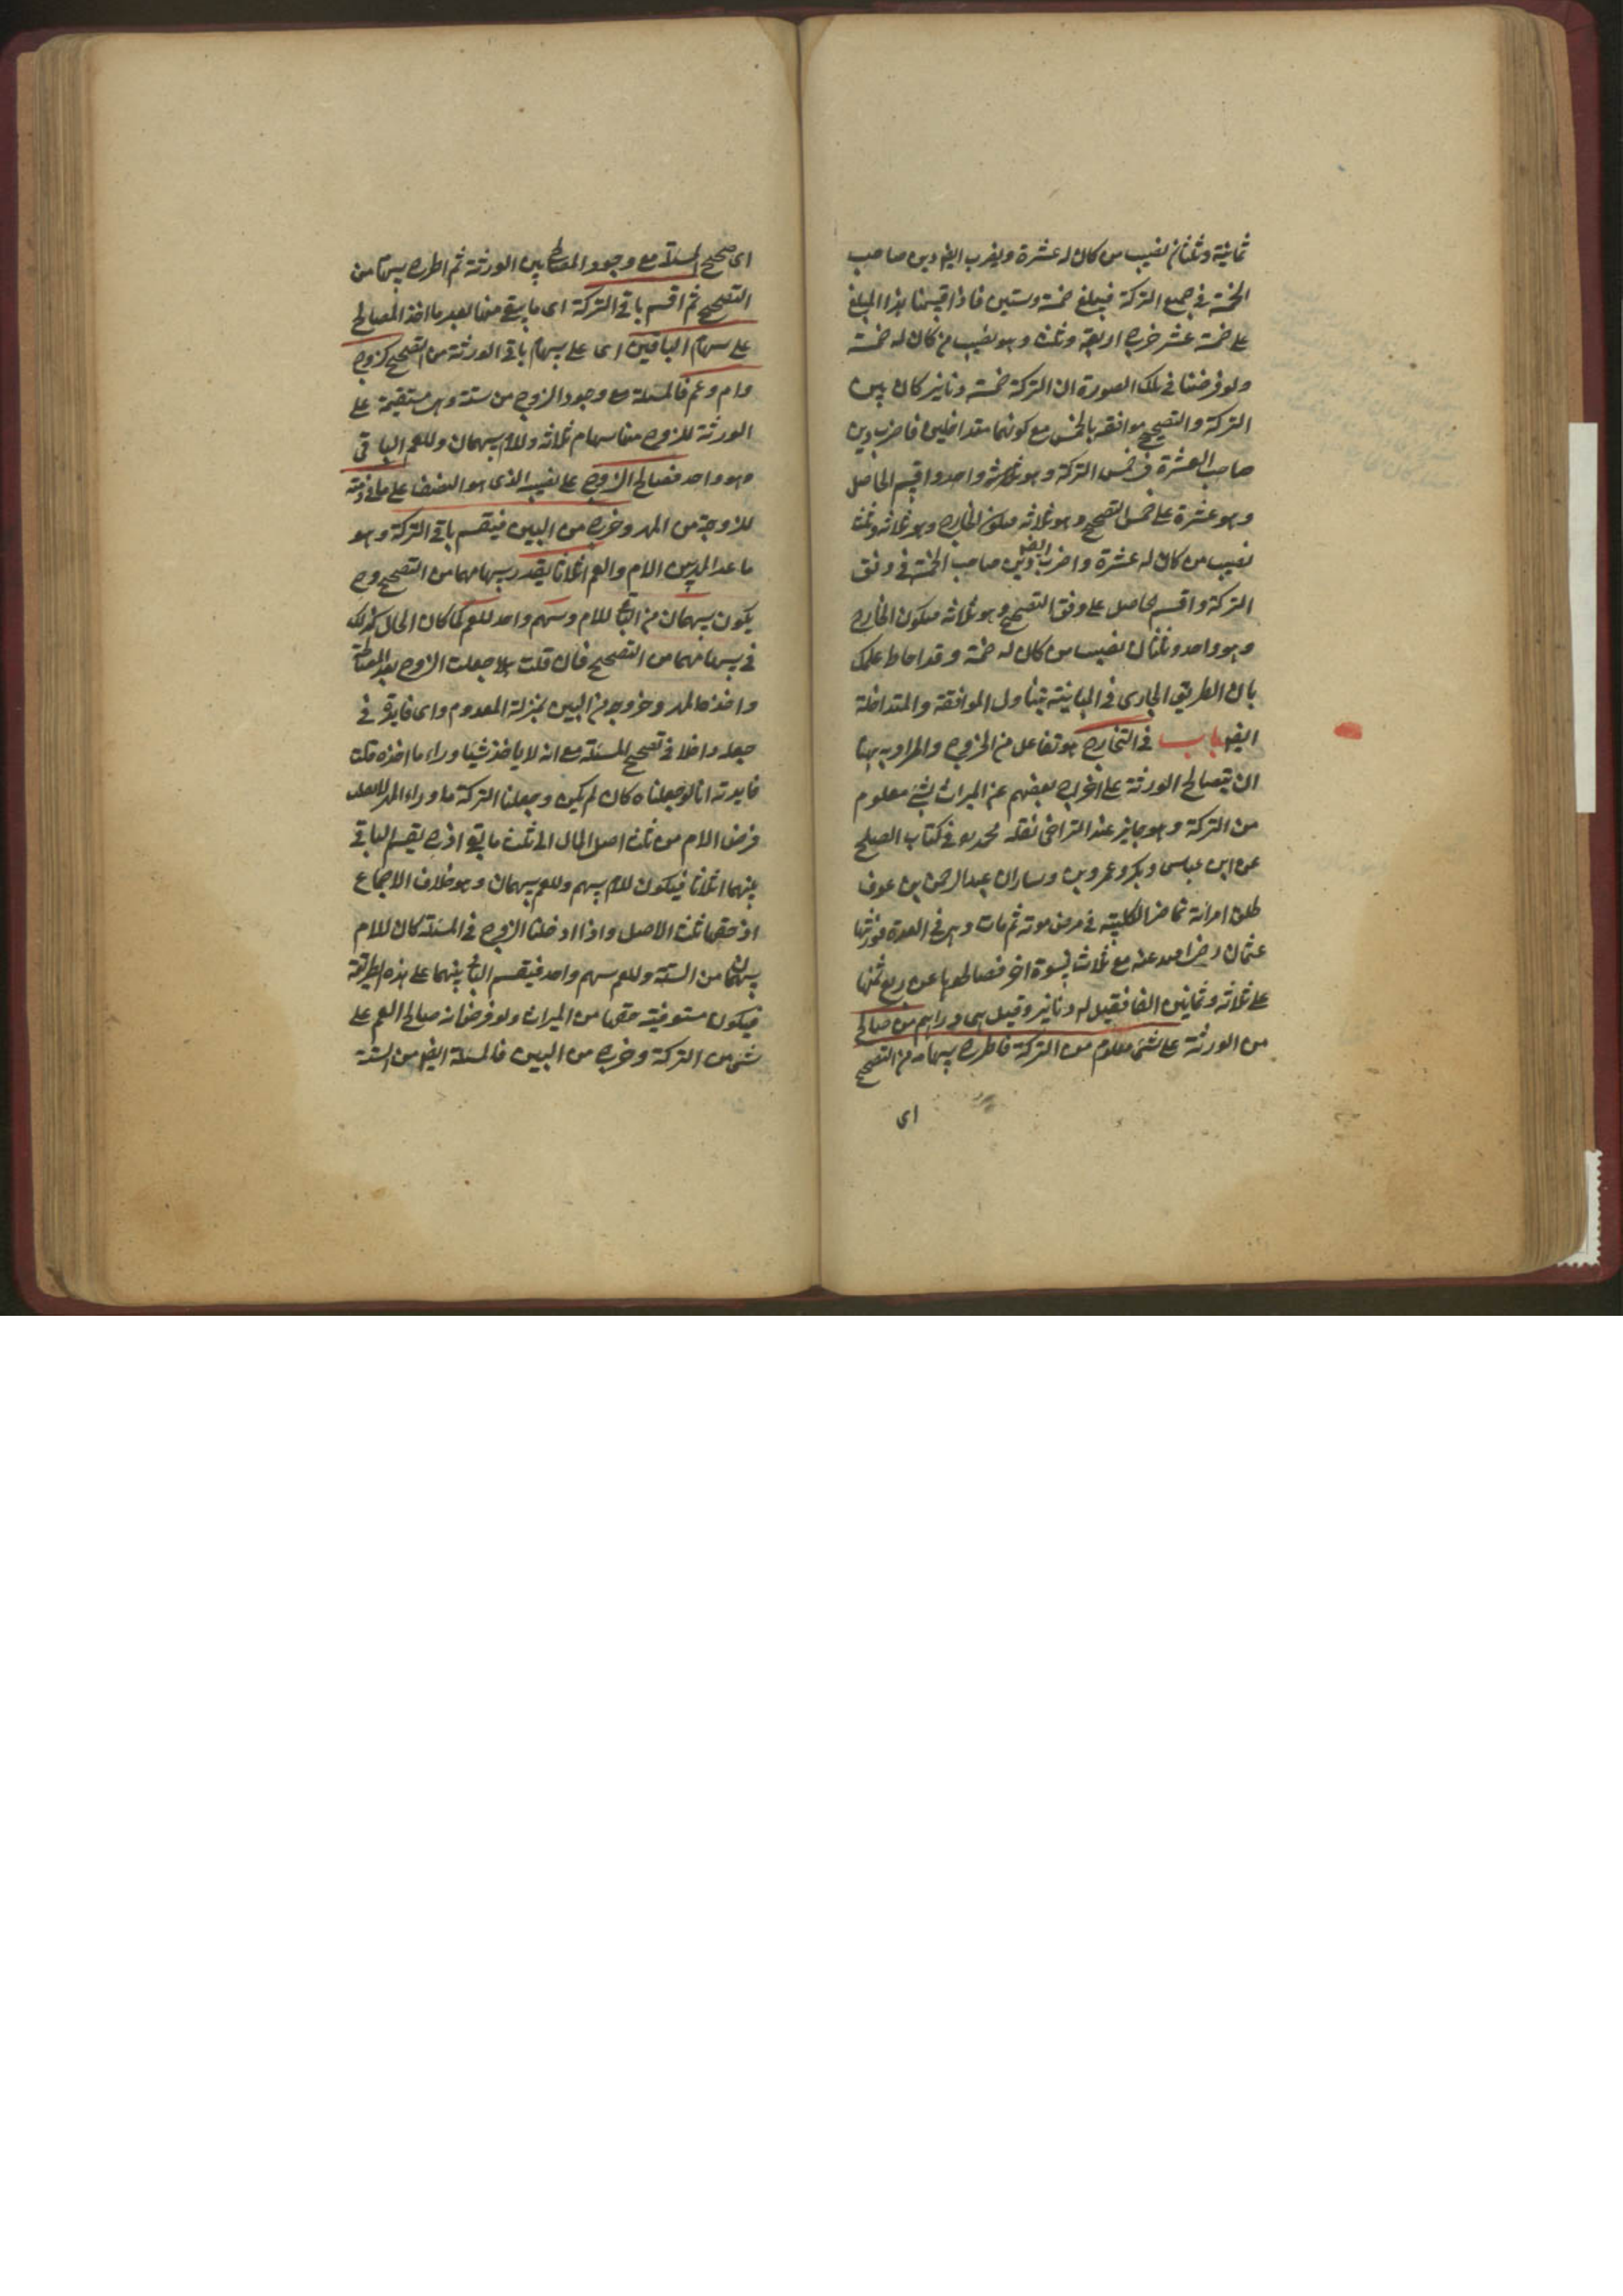 ثمانية وثلثان نصيب من كان له عشرة ويضرب ايضا دين صاحب
الخمسة في جميع التركة فيبلغ خمسة وستين فاذا قسمنا هذا المبلغ
على خمسة عشر خرج اربعة وثلث وهو نصيب من كان له خمسة
ولو فرضنا في تلك الصورة ان التركة خمسة دنانير كان بين
التركة والتصحيح موافقة بالخمس مع كونهما متداخلين فاضرب دين
صاحب العشرة في خمس التركة وهو واحد واقسم الحاصل
وهو عشرة على خمس التصحيح وهو ثلاثة فيكون الخارج وهو ثلاثة وثلث
نصيب من كان له عشرة واضرب ايضا دين صاحب الخمسة في وفق
التركة واقسم الحاصل على وفق التصحيح وهو ثلاثة فيكون الخارج
وهو واحد وثلثان نصيب من كان له خمسة وقد احاط علمك
بان الطريق الجارى في المباينة يتناول الموافقة والمتداخلة
ايضا باب في التخارج هو تفاعل من الخروج والمراد به ههنا
ان يتصالح الورثة على اخراج بعضهم عن الميراث بشئ معلوم
من التركة وهو جايز عند التراضى نقله محمد في كتاب الصلح
عن ابن عباس وبكر وعمرو بن ان عبد الرحمن بن عوف
طلق امرأته تماضر الكلبية في مرض موته ثم مات وهى في العدة فورثها
عثمان رضى الله عنه مع ثلاث نسوة اخر فصالحوها عن ربع ثمنها
على ثلاثة وثمانين الفا فقيل له دنانير وقيل هى دراهم من صالح
من الورثة على شئ معلوم من التركة فاطرح سهامه من التصحيح
اى
اى صحح المسئلة مع وجود المصالح بين الورثة ثم اطرح سهامه من
التصحيح ثم اقسم باقى التركة اى ما يبقى منها بعد ما اخذ المصالح
على سهام الباقين اى على سهام باقى الورثة من التصحيح كزوج
وام وعم فالمسئلة مع وجود الزوج من ستة وهى مستقيمة على
الورثة للزوج منها سهام ثلاثة وللام سهمان وللعم الباقى
وهو واحد فصالح الزوج على نصيبه الذى هو النصف على ما في ذمته
للزوجة من المهر وخرج من البين فيقسم باقى التركة وهو
ما عدا المهر بين الام والعم اثلاثا بقدر سهامهما من التصحيح وح
يكون سهمان من الباقى للام وسهم واحد للعم كما كان الحال كذلك
في سهامهما من التصحيح فان قلت هلا جعلت الزوج بعد المصالحة
واخذه المهر وخروجه من البين بمنزلة المعدوم واى فايدة في
جعله داخلا في تصحيح المسئلة مع انه لا ياخذ شيا وراء ما اخذه قلت
فايدته انا لو جعلناه كان لم يكن وجعلنا التركة ما وراء المهر لانقلب
فرض الام من ثلث اصل المال الى ثلث ما بقى اذ ح يقسم الباقى
بينهما اثلاثا فيكون للام سهم وللعم سهمان وهو خلاف الاجماع
اذ حقها ثلث الاصل واذا ادخلنا الزوج في المسئلة كان للام
سهمان من الستة وللعم سهم واحد فيقسم الباقى بينهما على هذه الطريقة
فيكون مستوفية حقها من الميراث ولو فرضنا انه صالح العم على
شئ من التركة وخرج من البين فالمسئلة ايضا من الستة